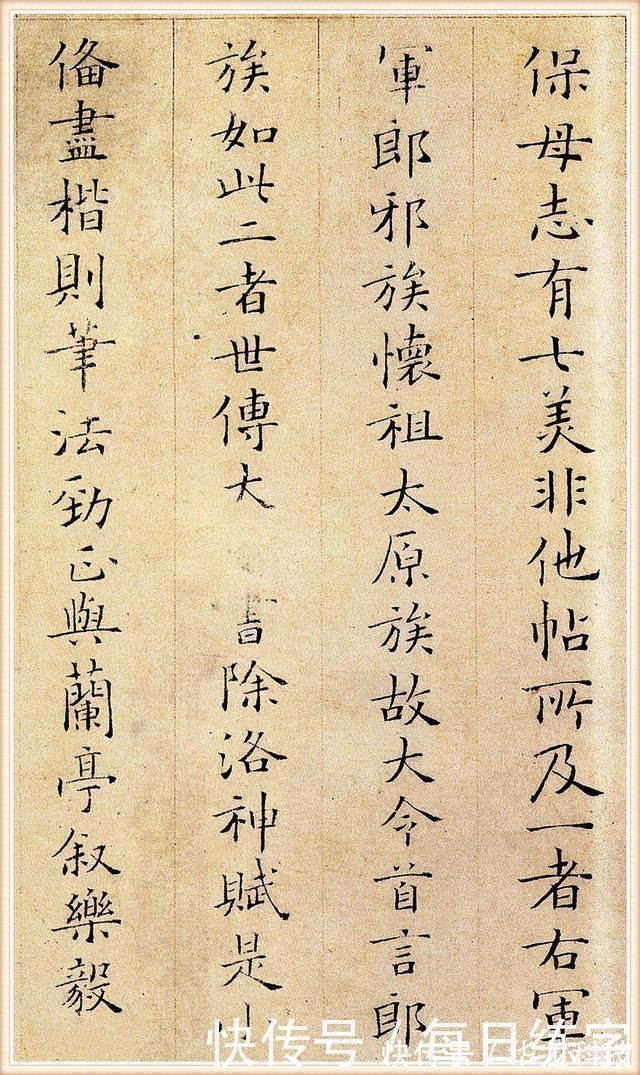 保母志有七美非他帖所及一者右軍
軍郎邪族懷祖太原族故大令首言郎
族如此二者世傳大 書除洛神賦是
俻盡楷則筆法勁正與蘭亭叙樂毅
快传号 / 每日练字